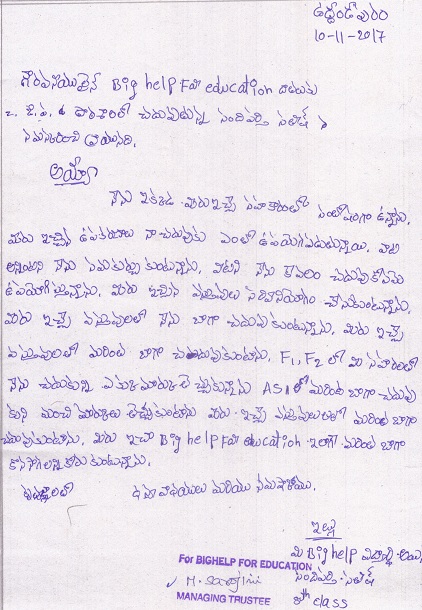 ఉద్దండపురం
10-11-2017
గౌరవనీయులైన Big help For education దాతలకు
జి.ప. చదువుతున్న సందిపర్తి సతీష్
నమస్కరించి వ్రాయునది.
అయ్యా
నేను ఇక్కడ మీరు ఇచ్చే సహకారంతో సంతోషంగా ఉన్నాను.
మీరు ఇచ్చిన ఉపకరణాలు నా చదువుకు ఎంతో ఉపయోగపడుతున్నాయి. వాటి
అన్నింటిని నేను సమకుర్చుకుంటున్నాను. వీటిని నేను కేవలం చదువుకోసమే
ఉపయోగిస్తున్నాను. మీరు ఇచ్చిన వస్తువులు సద్వినియోగం చేసుకుంటున్నాను.
మీరు ఇచ్చే వస్తువులతో నేను బాగా చదువుకుంటున్నాను. మీరు ఇచ్చే
వస్తువులతో మరింత బాగా చదువుకుంటాను. F1, F2 లో మీ సహకారంతో
నేను చదుకుని ఎక్కువ మార్కులు తెచ్చుకున్నాను SA1 లో మరింత బాగా చదువు
కుని మంచి మార్కులు తెచ్చుకుంటాను మీరు ఇచ్చే వస్తువులతో మరింత బాగా
చదువుకుంటాను. మీరు ఇలా Big help For education ఇలాగే మరింత బాగా
కొనసాగాలని కోరుకుంటున్నాను.
మరియు నమస్కారము.
ఇట్లు
మీ Big help విద్యార్థి
సందిపర్తి సతీష్
8th class
For BIGHELP FOR EDUCATION
MANAGING TRUSTEE